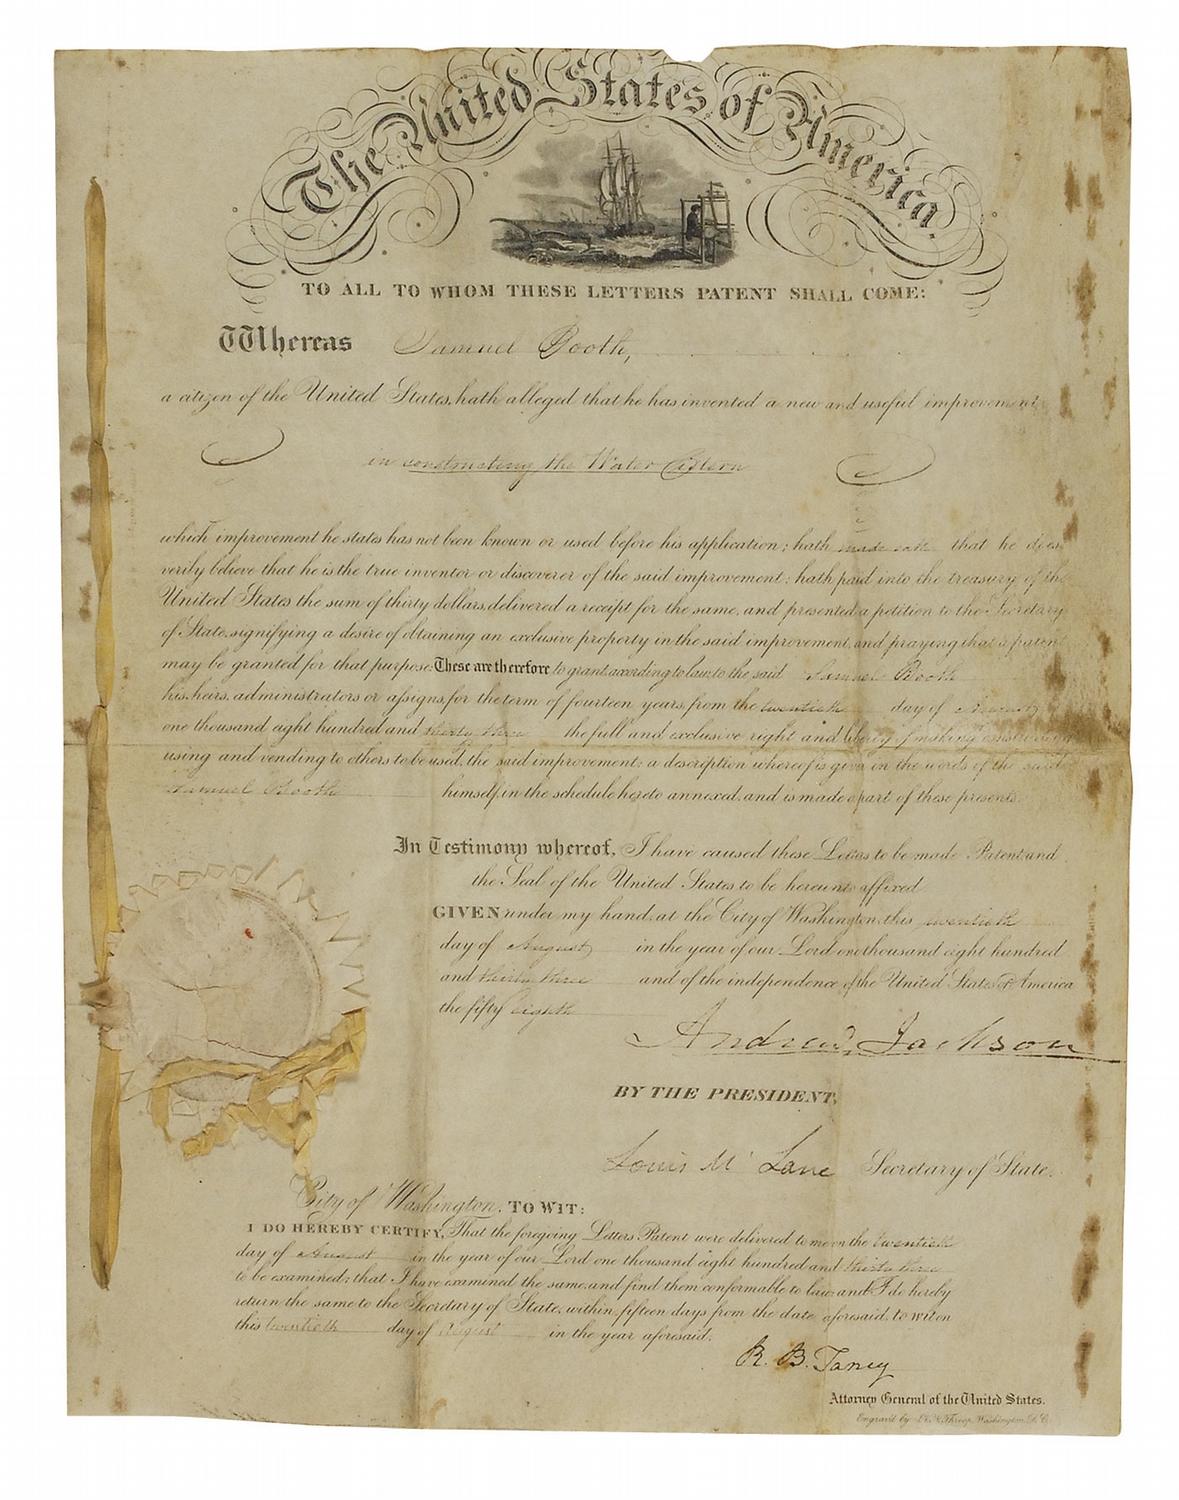 The United States of America
TO ALL TO WHOM THESE LETTERS PATENT SHALL COME:
Whereas Samuel Booth,
a citizen of the United States, hath alleged that he has invented a new and useful improvement
in constructing the Water Cistern
which improvement he states has not been known or used before his application; hath made oath that he does
verily believe that he is the true inventor or discoverer of the said improvement; hath paid into the treasury of the
United States the sum of thirty dollars, delivered a receipt for the same, and presented a petition to the Secretary
of State, signifying a desire of obtaining an exclusive property in the said improvement, and praying that a patent
may be granted for that purpose: These are therefore to grant, according to law, to the said Samuel Booth
his heirs, administrators or assigns, for the term of fourteen years, from the twentieth day of August
one thousand eight hundred and thirty three the full and exclusive right and liberty of making, constructing,
using and vending to others to be used, the said improvement; a description whereof is given in the words of the said
Samuel Booth himself, in the schedule hereto annexed, and is made a part of these presents.
In Testimony whereof, I have caused these Letters to be made Patent, and
the Seal of the United States to be hereunto affixed
GIVEN under my hand, at the City of Washington, this twentieth
day of August in the year of our Lord one thousand eight hundred
and thirty three and of the independence of the United States of America
the fifty eighth
Andrew Jackson
BY THE PRESIDENT,
Louis McLane Secretary of State.
City of Washington, TO WIT:
I DO HEREBY CERTIFY, That the foregoing Letters Patent were delivered to me on the twentieth
day of August in the year of our Lord one thousand eight hundred and thirty three
to be examined; that I have examined the same, and find them conformable to law; and I do hereby
return the same to the Secretary of State, within fifteen days from the date aforesaid, to wit: on
this twentieth day of August in the year aforesaid.
R. B. Taney
Attorney General of the United States.
Engrav'd by Throop, Washington, D.C.